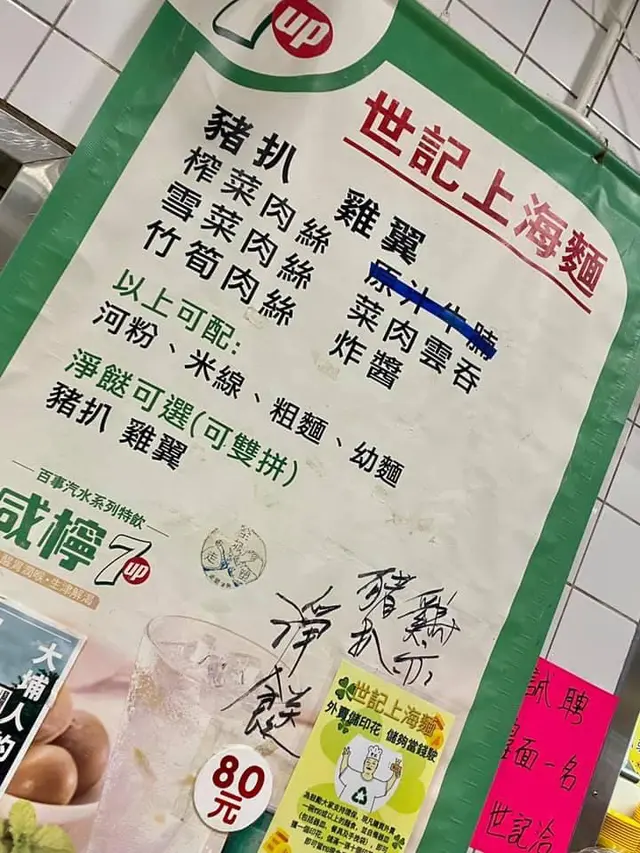 7up
世記上海麵
豬扒 雞翼
榨菜肉絲 原汁牛腩
雪菜肉絲 菜肉雲吞
竹筍肉絲 炸醬
以上可配:
河粉、米線、粗麵、幼麵
淨餸可選(可雙拼)
豬扒 雞翼
百事汽水系列特飲
咸檸7up
生津解渴
淨餸
豬扒
雞亦
80元
大埔人
世記上海麵
外賣儲印花 儲夠當錢駛
誠聘
一名
世記洽